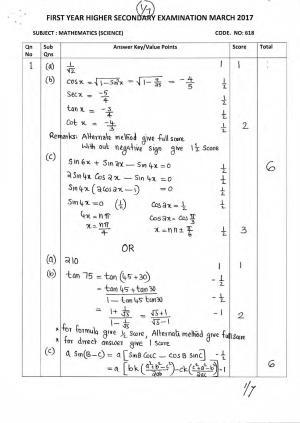 1/7
FIRST YEAR HIGHER SECONDARY EXAMINATION MARCH 2017
SUBJECT : MATHEMATICS (SCIENCE) CODE. NO: 618
Qn No Sub Qns Answer Key/Value Points Score Total
1 (a) 1/√2 1 1
(b) cosx = √1-Sin²x = √1-9/25 = -4/5 ½
Secx = -5/4 ½
tanx = -3/4 ½
Cotx = -4/3 ½ 2
Remarks: Alternate method give full score
With out negative sign give 1½ Score
(c) Sin6x + Sin2x - Sin4x = 0 ½ 6
2Sin4x Cos2x - Sin4x = 0 ½
Sin4x (2cos2x - 1) = 0 ½
Sin4x = 0 (½) Cos2x = ½ ½
4x = nπ Cos2x = Cos π/3
x = nπ/4 x = nπ ± π/6 ½ 3
OR
(a) 210 1 1
(b) tan75 = tan(45+30) -½
= tan45 + tan30 / 1 - tan45 tan30 -½
= 1 + 1/√3 / 1 - 1/√3 = √3+1 / √3-1 -1 2
* for formula give ½ Score, Alternate method give full score
* for direct answer give 1 Score
(c) a Sin(B-C) = a [SinB CosC - CosB SinC] -½ 6
1/7